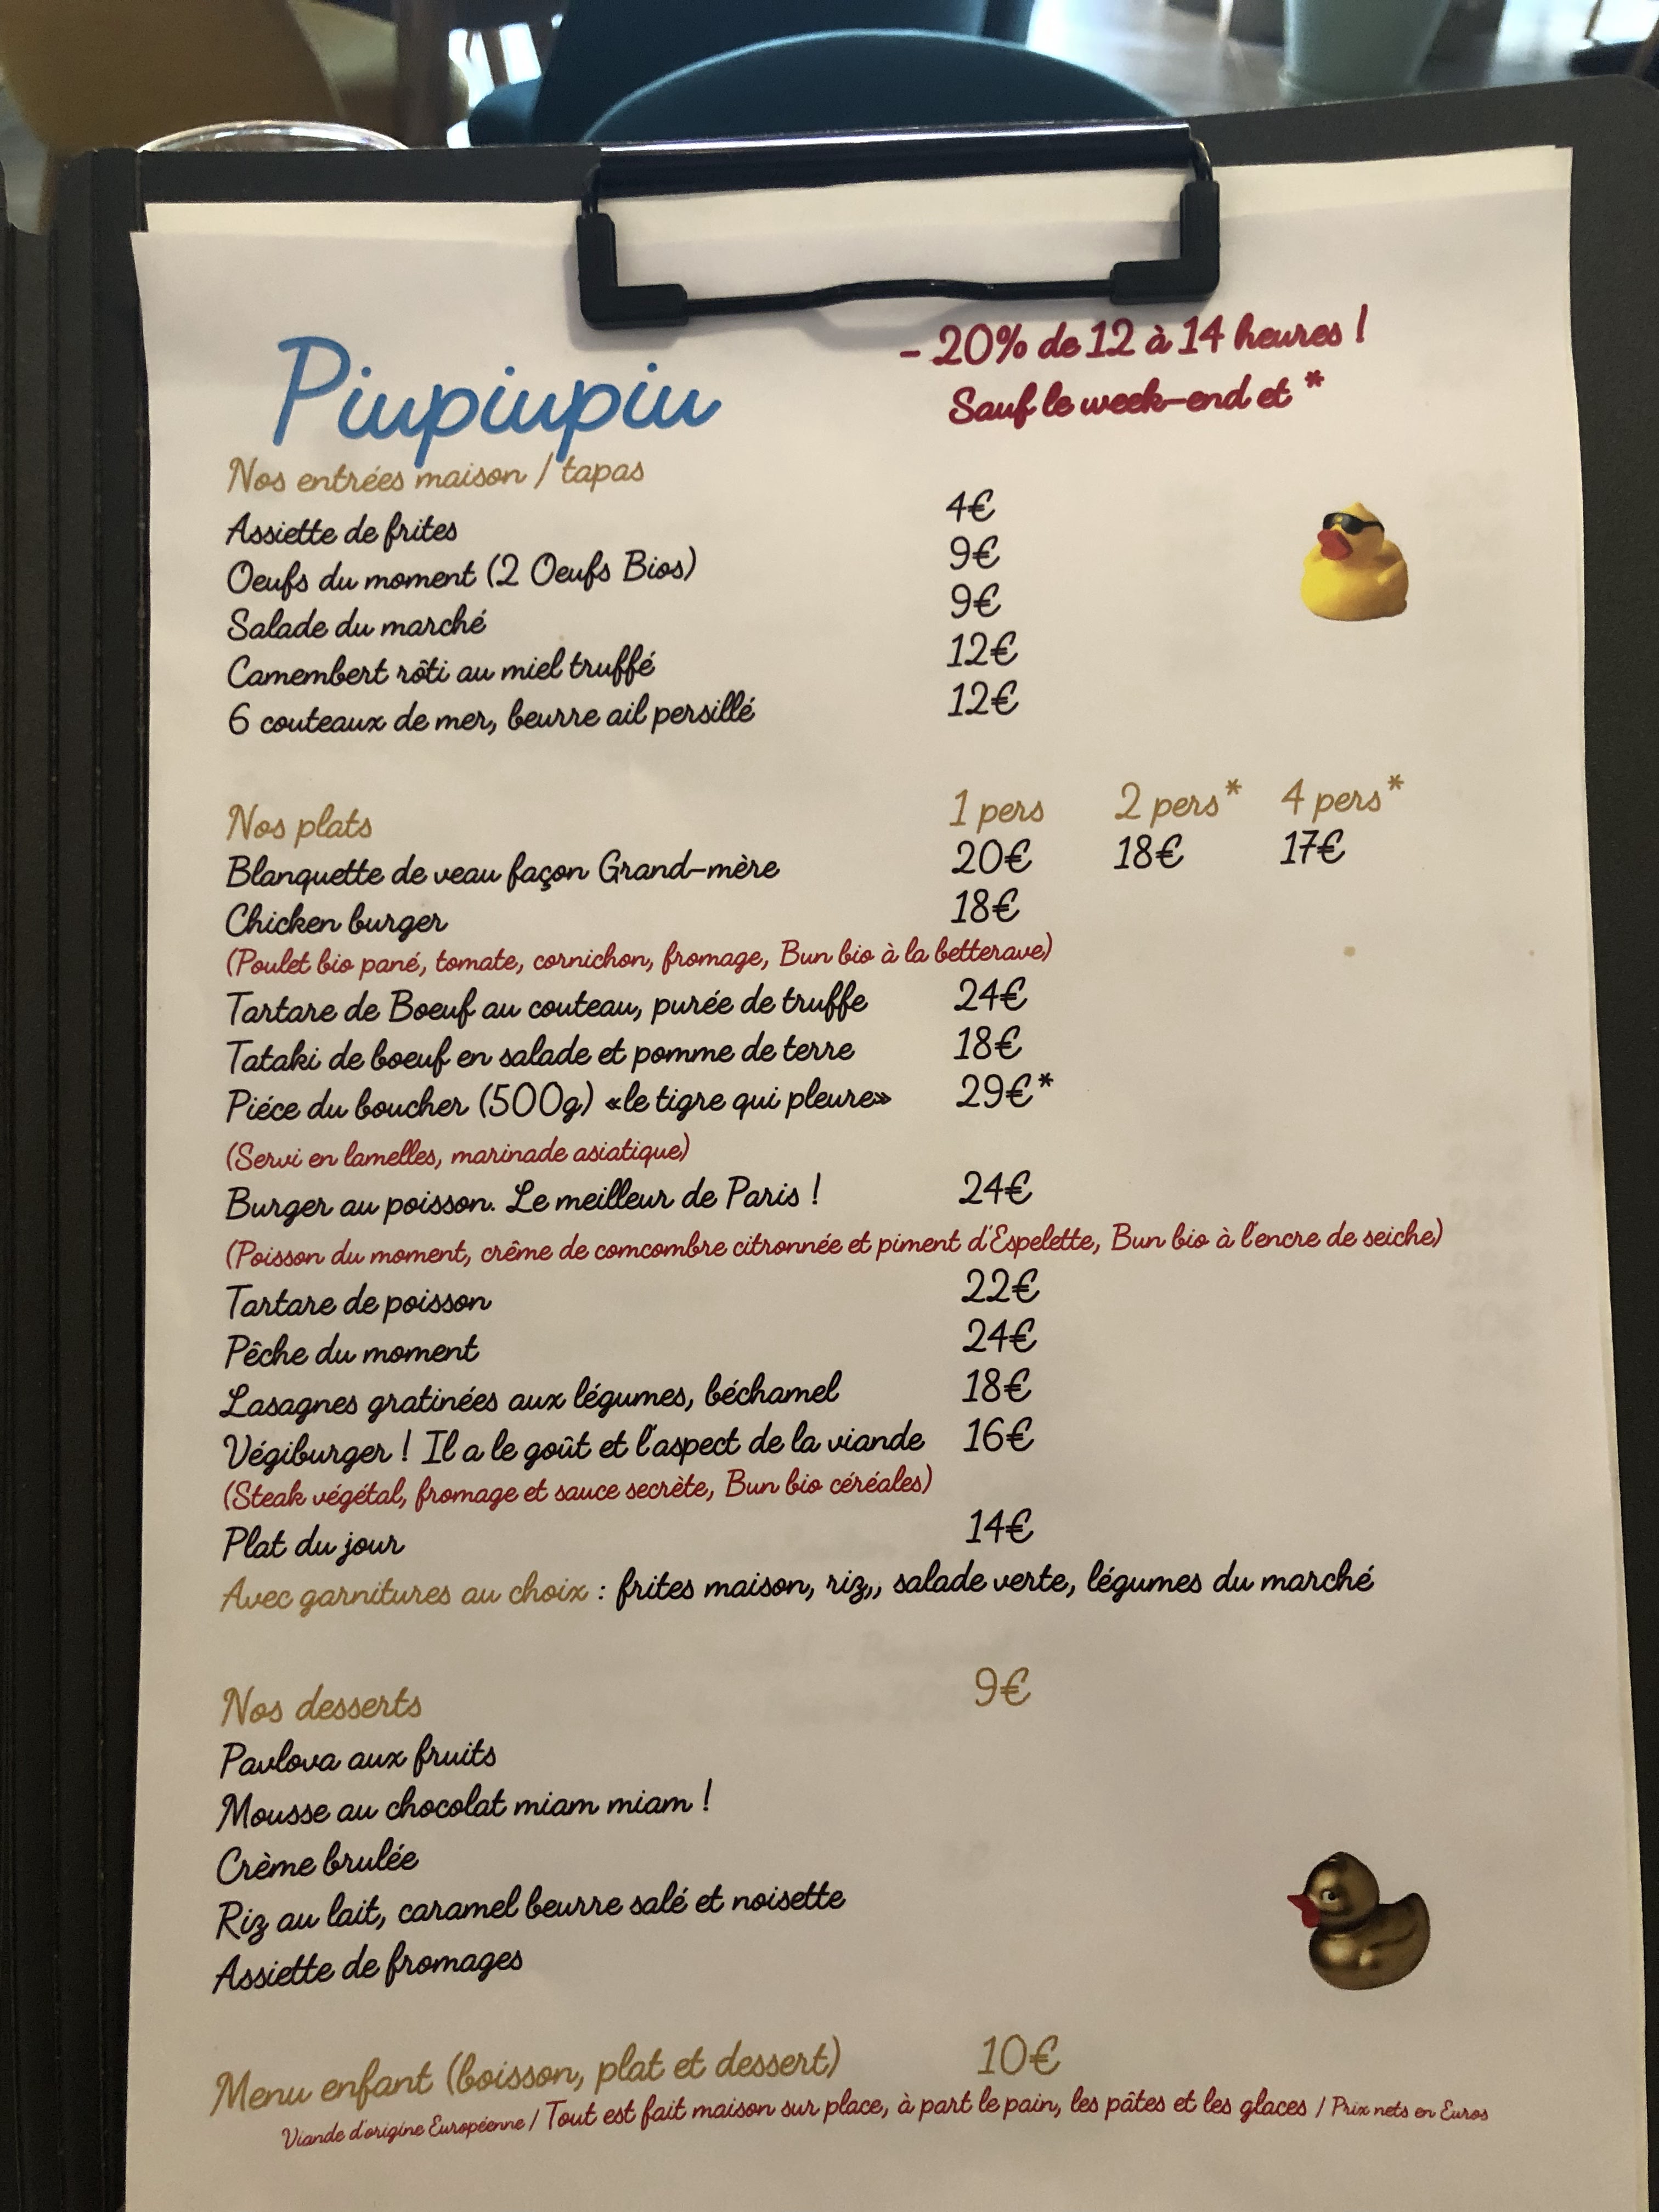 Piupiupiu
- 20% de 12 à 14 heures !
Sauf le week-end et *
Nos entrées maison / tapas
Assiette de frites 4€
Oeufs du moment (2 Oeufs Bios) 9€
Salade du marché 9€
Camembert rôti au miel truffé 12€
6 couteaux de mer, beurre ail persillé 12€
Nos plats 1 pers 2 pers* 4 pers*
Blanquette de veau façon Grand-mère 20€ 18€ 17€
Chicken burger 18€
(Poulet bio pané, tomate, cornichon, fromage, Bun bio à la betterave)
Tartare de Boeuf au couteau, purée de truffe 24€
Tataki de boeuf en salade et pomme de terre 18€
Piéce du boucher (500g) «le tigre qui pleure» 29€*
(Servi en lamelles, marinade asiatique)
Burger au poisson. Le meilleur de Paris ! 24€
(Poisson du moment, crême de comcombre citronnée et piment d'Espelette, Bun bio à l'encre de seiche)
Tartare de poisson 22€
Pêche du moment 24€
Lasagnes gratinées aux légumes, béchamel 18€
Végiburger ! Il a le goût et l'aspect de la viande 16€
(Steak végétal, fromage et sauce secrète, Bun bio céréales)
Plat du jour 14€
Avec garnitures au choix : frites maison, riz,, salade verte, légumes du marché
Nos desserts 9€
Pavlova aux fruits
Mousse au chocolat miam miam !
Crème brulée
Riz au lait, caramel beurre salé et noisette
Assiette de fromages
Menu enfant (boisson, plat et dessert) 10€
Viande d'origine Européenne / Tout est fait maison sur place, à part le pain, les pâtes et les glaces / Prix nets en Euros